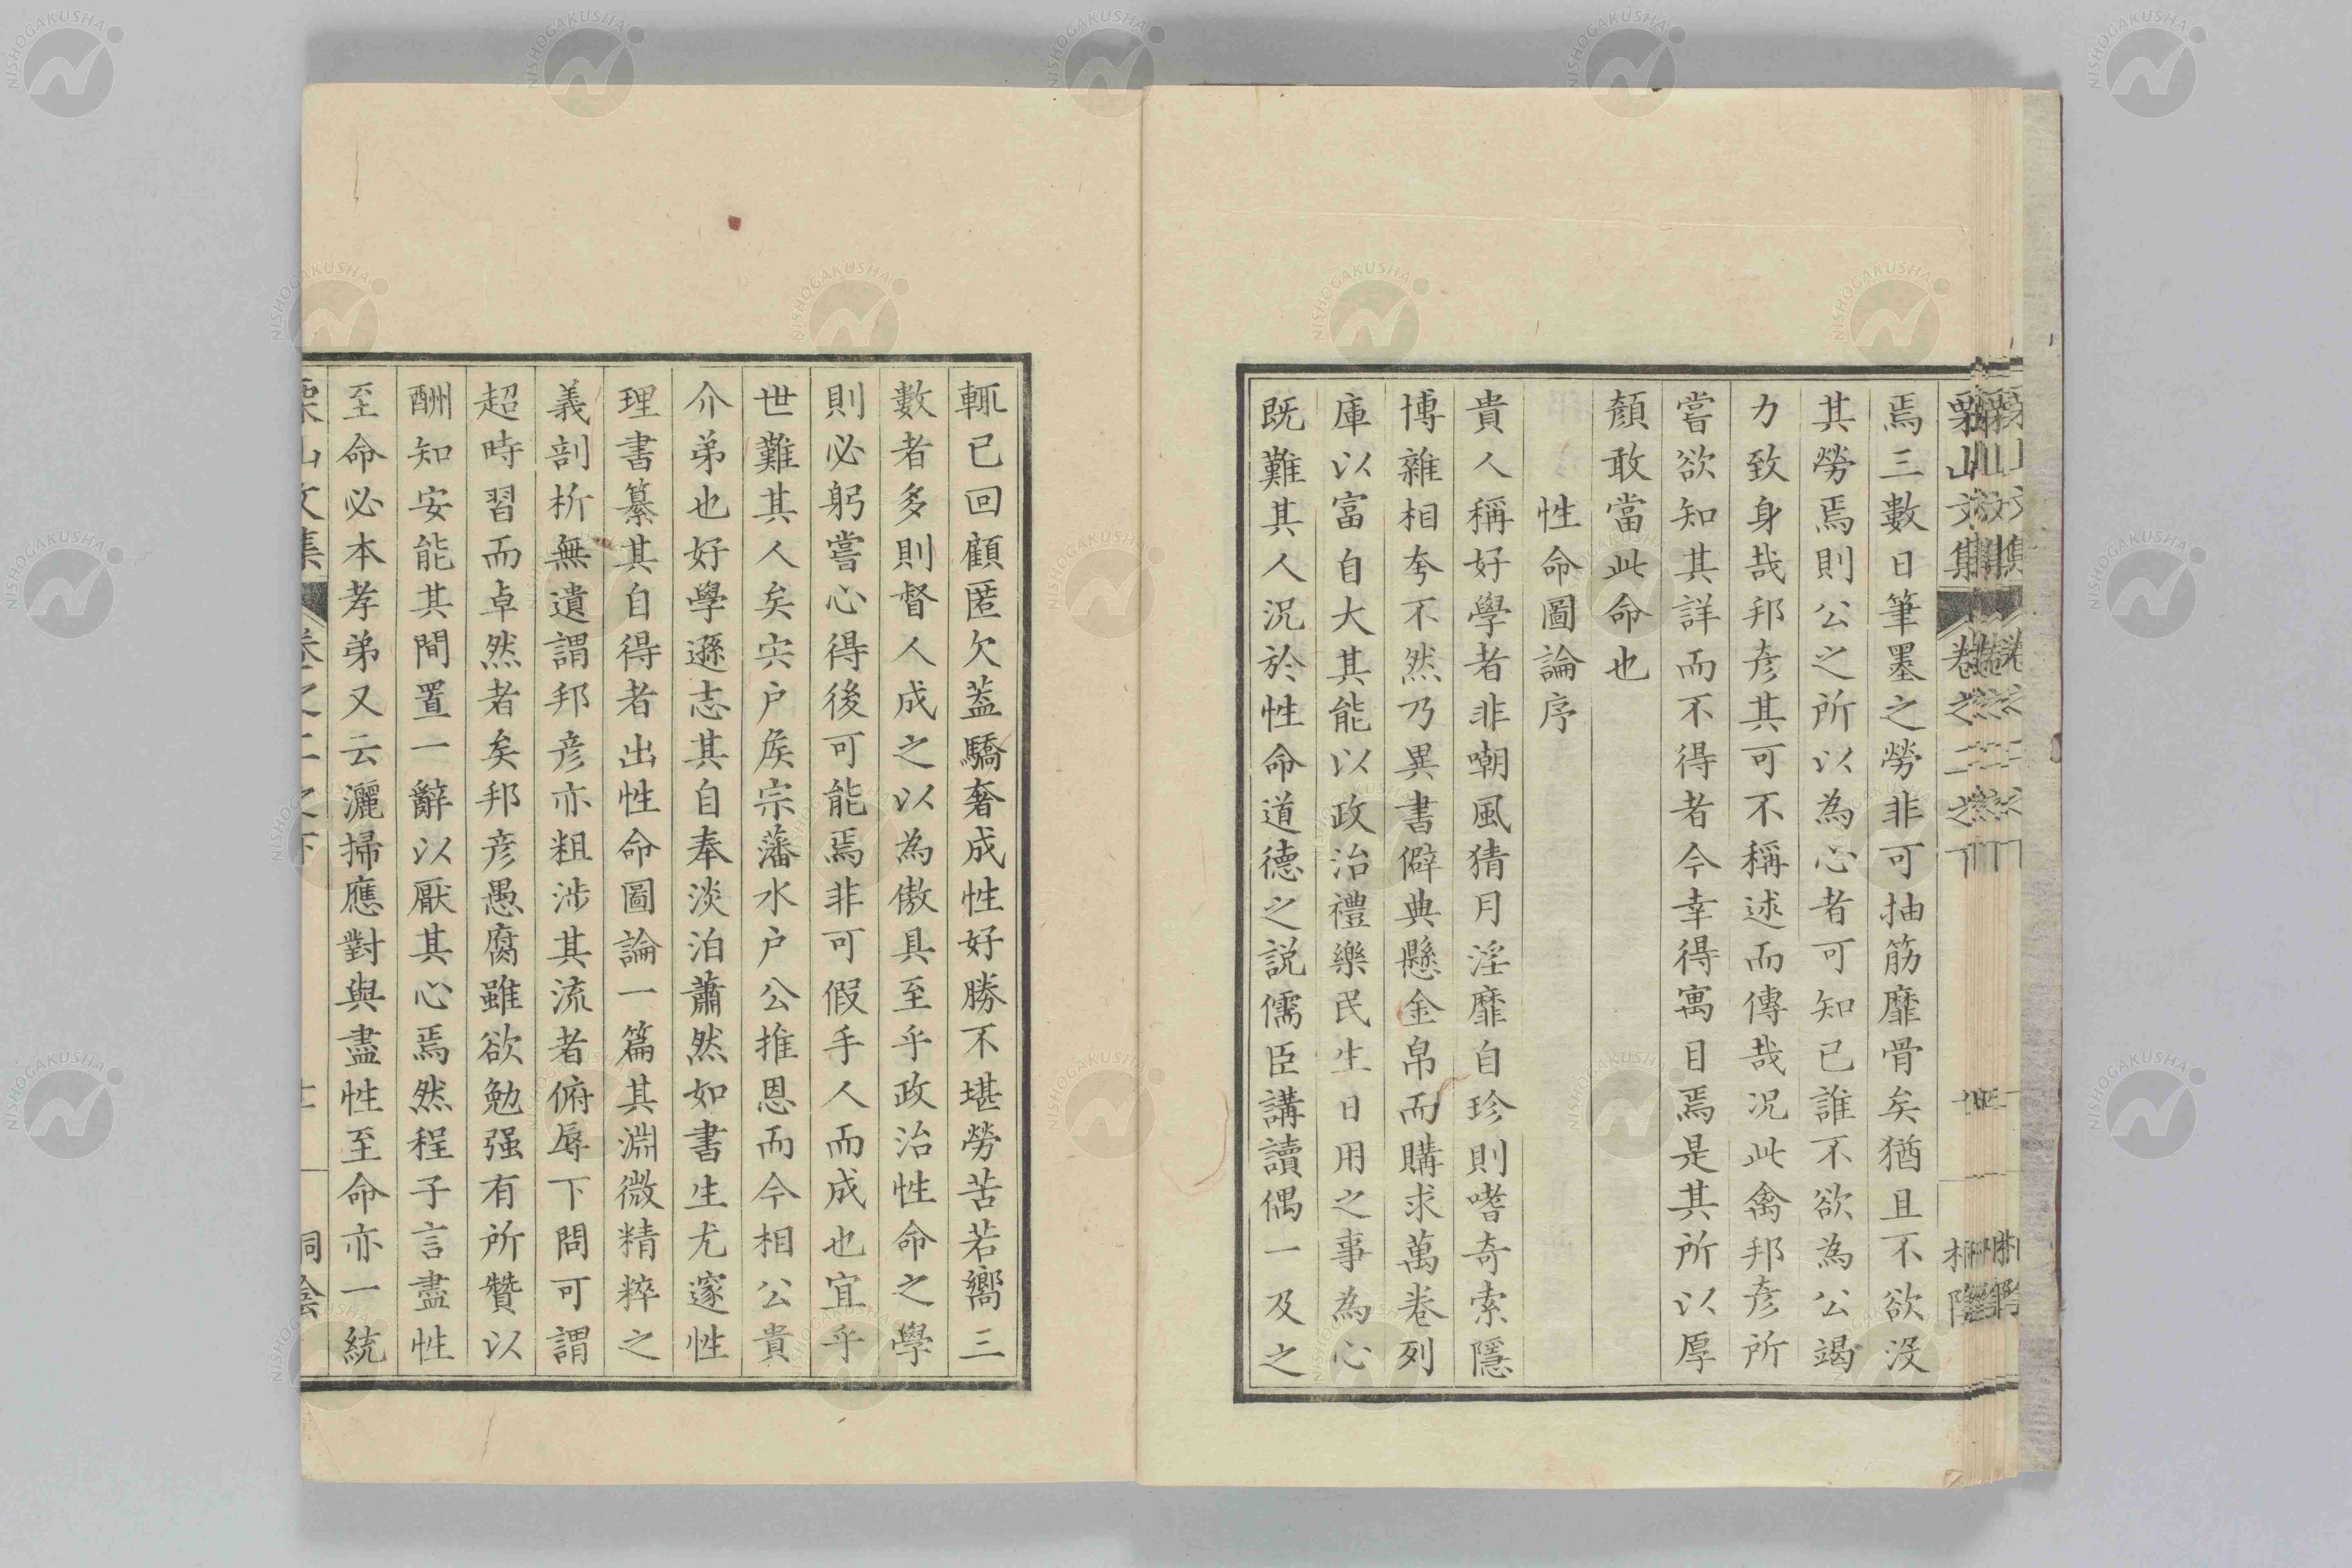 焉三數日筆墨之勞非可抽筋靡骨矣猶且不欲沒
其勞焉則公之所以為心者可知已誰不欲為公竭
力致身哉邦彥其可不稱述而傳哉況此禽邦彥所
嘗欲知其詳而不得者今幸得寓目焉是其所以厚
顏敢當此命也
性命圖論序
貴人稱好學者非嘲風猜月淫靡自珍則嗜奇索隱
博雜相夸不然乃異書僻典懸金帛而購求萬卷列
庫以富自大其能以政治禮樂民生日用之事為心
既難其人況於性命道德之説儒臣講讀偶一及之
輒已回顧匿欠蓋驕奢成性好勝不堪勞苦若嚮三
數者多則督人成之以為傲具至乎政治性命之學
則必躬嘗心得後可能焉非可假手人而成也宜乎
世難其人矣宍户矦宗藩水户公推恩而今相公貴
介弟也好學遜志其自奉淡泊蕭然如書生尤邃性
理書纂其自得者出性命圖論一篇其淵微精粹之
義剖析無遺謂邦彥亦粗涉其流者俯辱下問可謂
超時習而卓然者矣邦彥愚腐雖欲勉强有所贊以
酬知安能其間置一辭以厭其心焉然程子言盡性
至命必本孝弟又云灑掃應對與盡性至命亦一統
栗山文集 卷之二之下
NISHOGAKUSHA